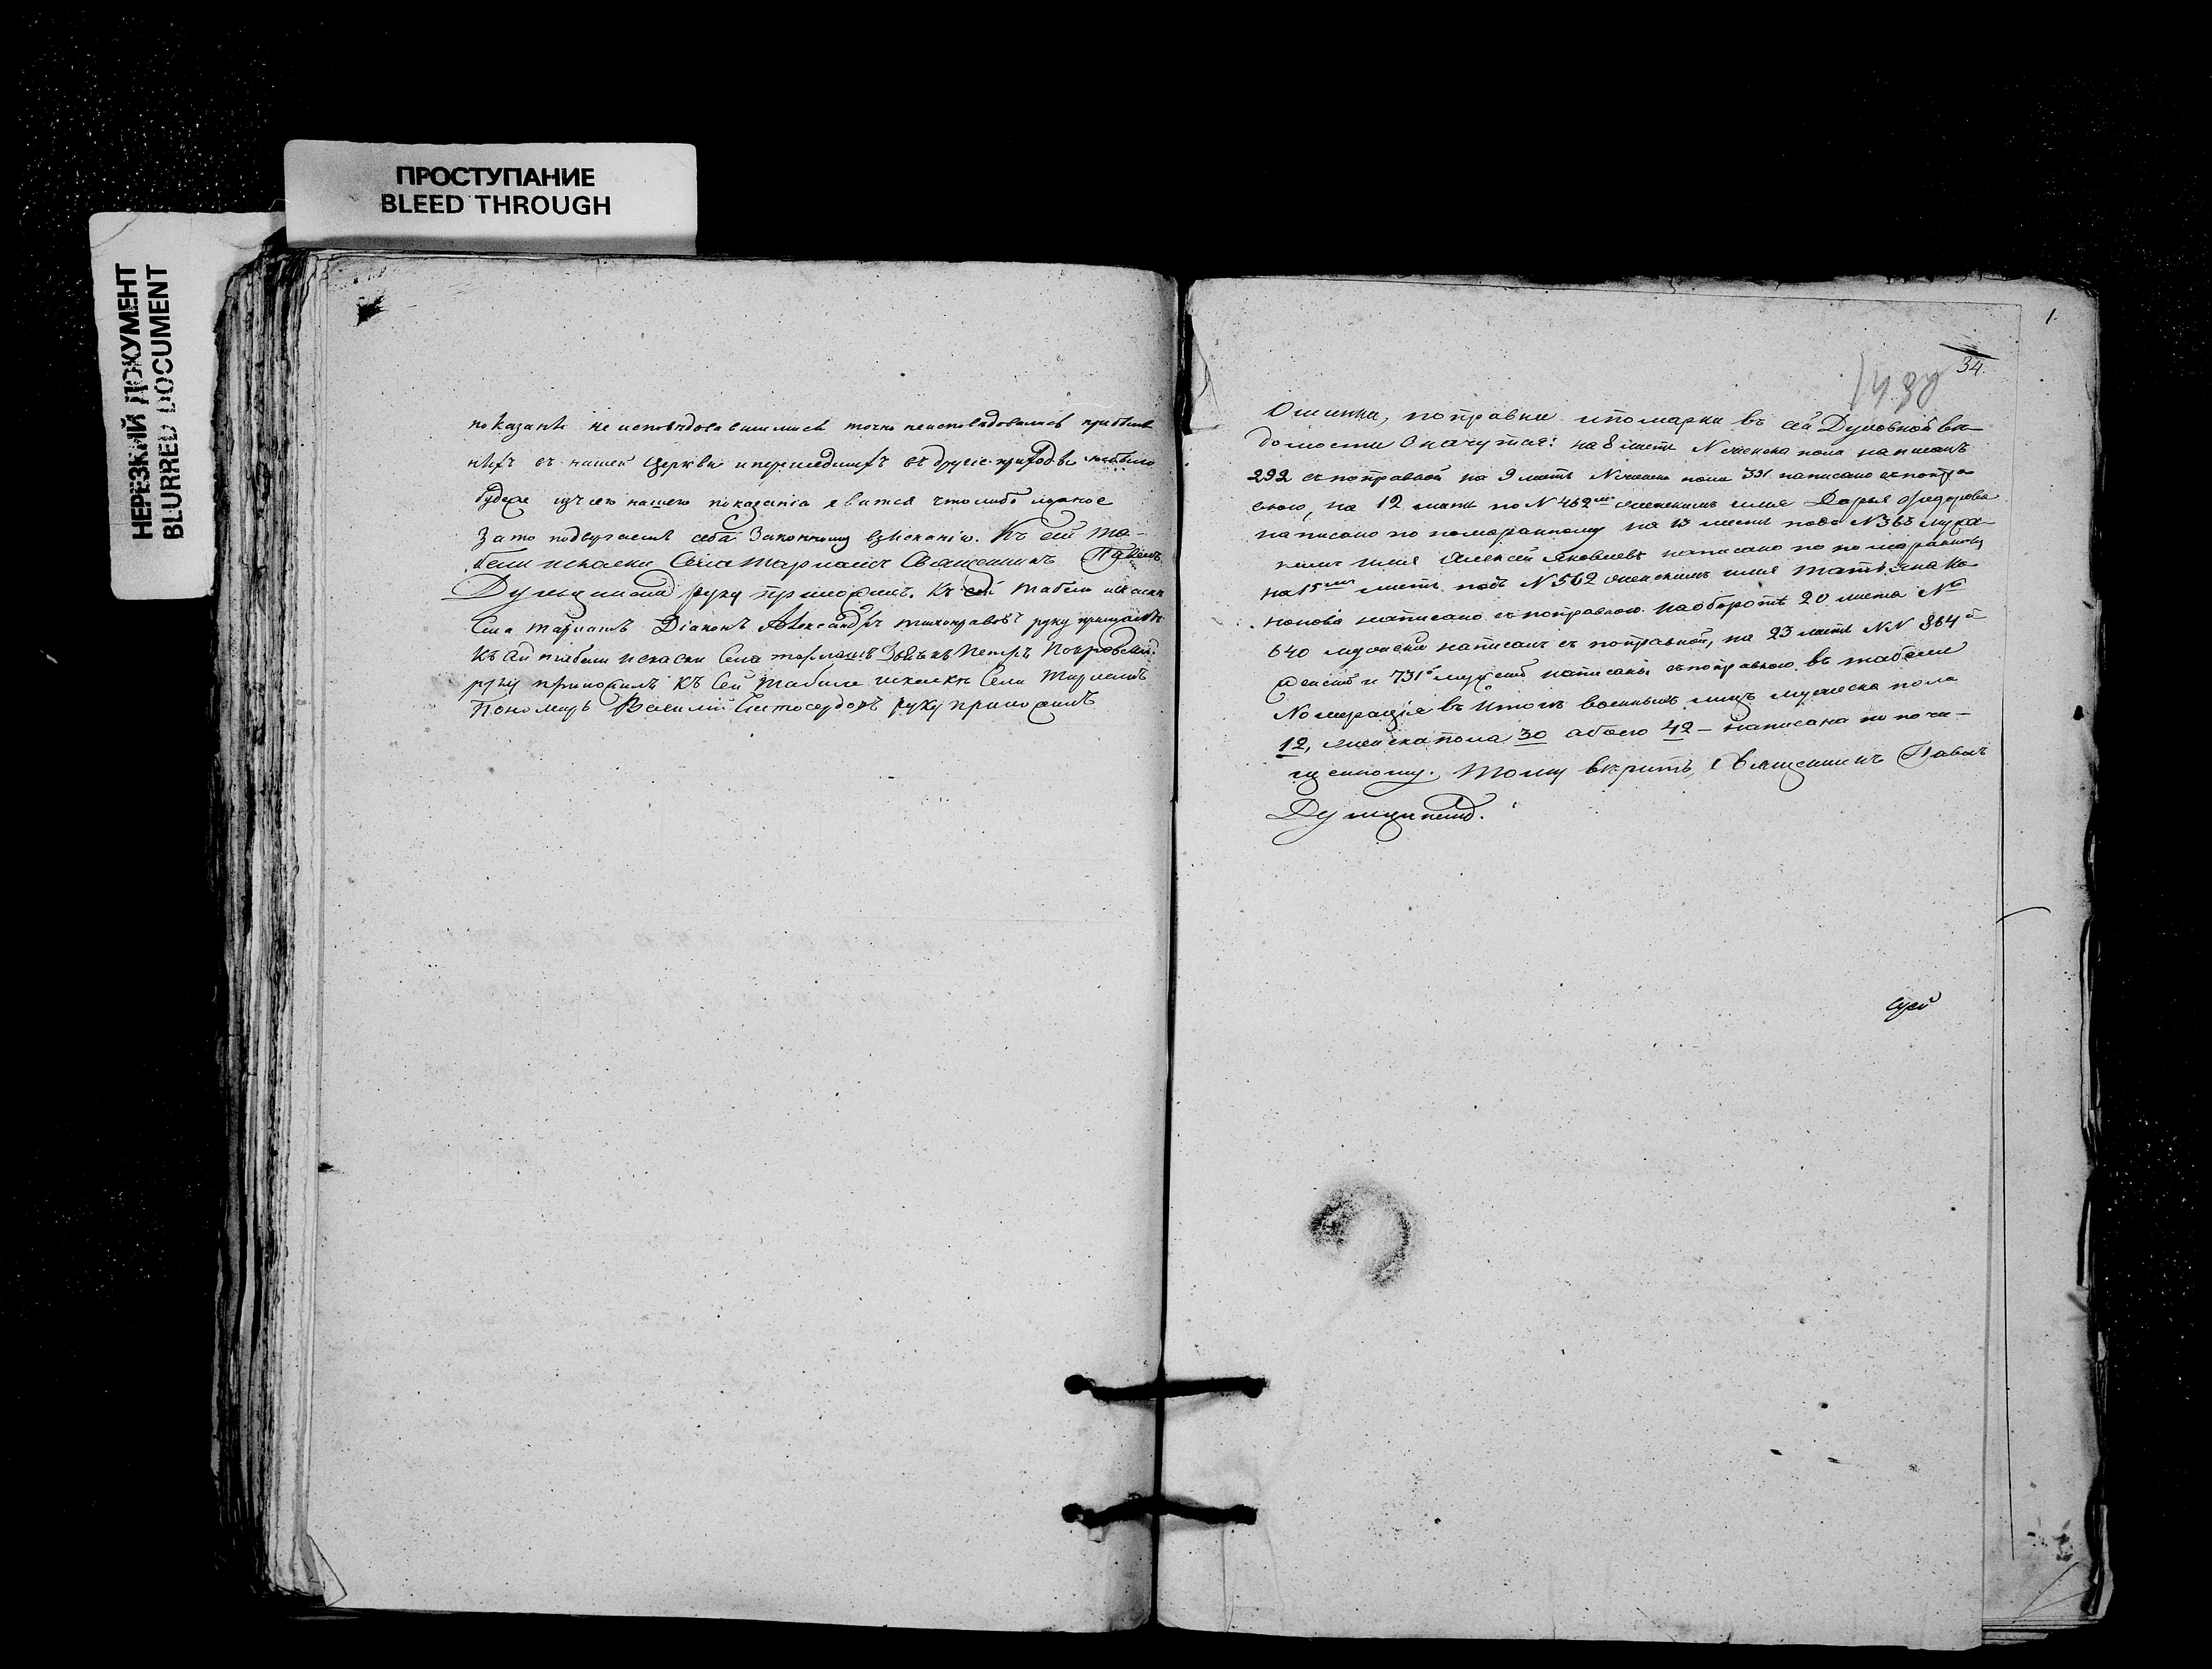 ПРОСТУПАНИЕ
BLEED THROUGH
НЕРЕЗКИЙ ДОКУМЕНТ
BLURRED DOCUMENT
показанъ не исповѣдовавшимися точно неисповѣдовались
въ нашей церкви и перешедшихъ въ другіе приходы не было
будеже изъ сего нашего показанія явится что либо ложное
за то подвергаемъ себя законному взысканію. Къ сей та-
бели и сказки Села Священникъ Павелъ
руку приложилъ. Къ сей табели и сказки
Села Діаконъ Александръ руку приложилъ
Къ сей табели и сказки Села Петръ Покровскій
руку приложилъ Къ Сей табели и сказки Села
Пономарь Василій руку приложилъ
1.
34.
Ошибки, поправки и помарки въ сей Духовной вѣ-
домости Окажутся: на 8 листѣ N женска пола написанъ
292 съ поправкой на 9 листѣ N женска пола 391 написано съ попра-
вкою, на 12 листѣ по N 462 женскимъ имя Дарья Федорова
написано по помаранному на 13 листѣ подъ N 363 муже-
имя Алексѣй Яковлевъ написано по помаранному
на 15 листѣ подъ N 502 женскимъ имя Татіяна Ко-
нонова написано съ поправкою на оборотѣ 20 листа N
640 написанъ съ поправкой, на 23 листѣ NN 864
женской и 731 мужской написаны съ поправкою. въ табели
Номерація въ Итогѣ военныхъ лицъ мужеска пола
12, женска пола 30 обоего 42 – написана по почи-
щенному. Тому вѣритъ Священникъ Павелъ